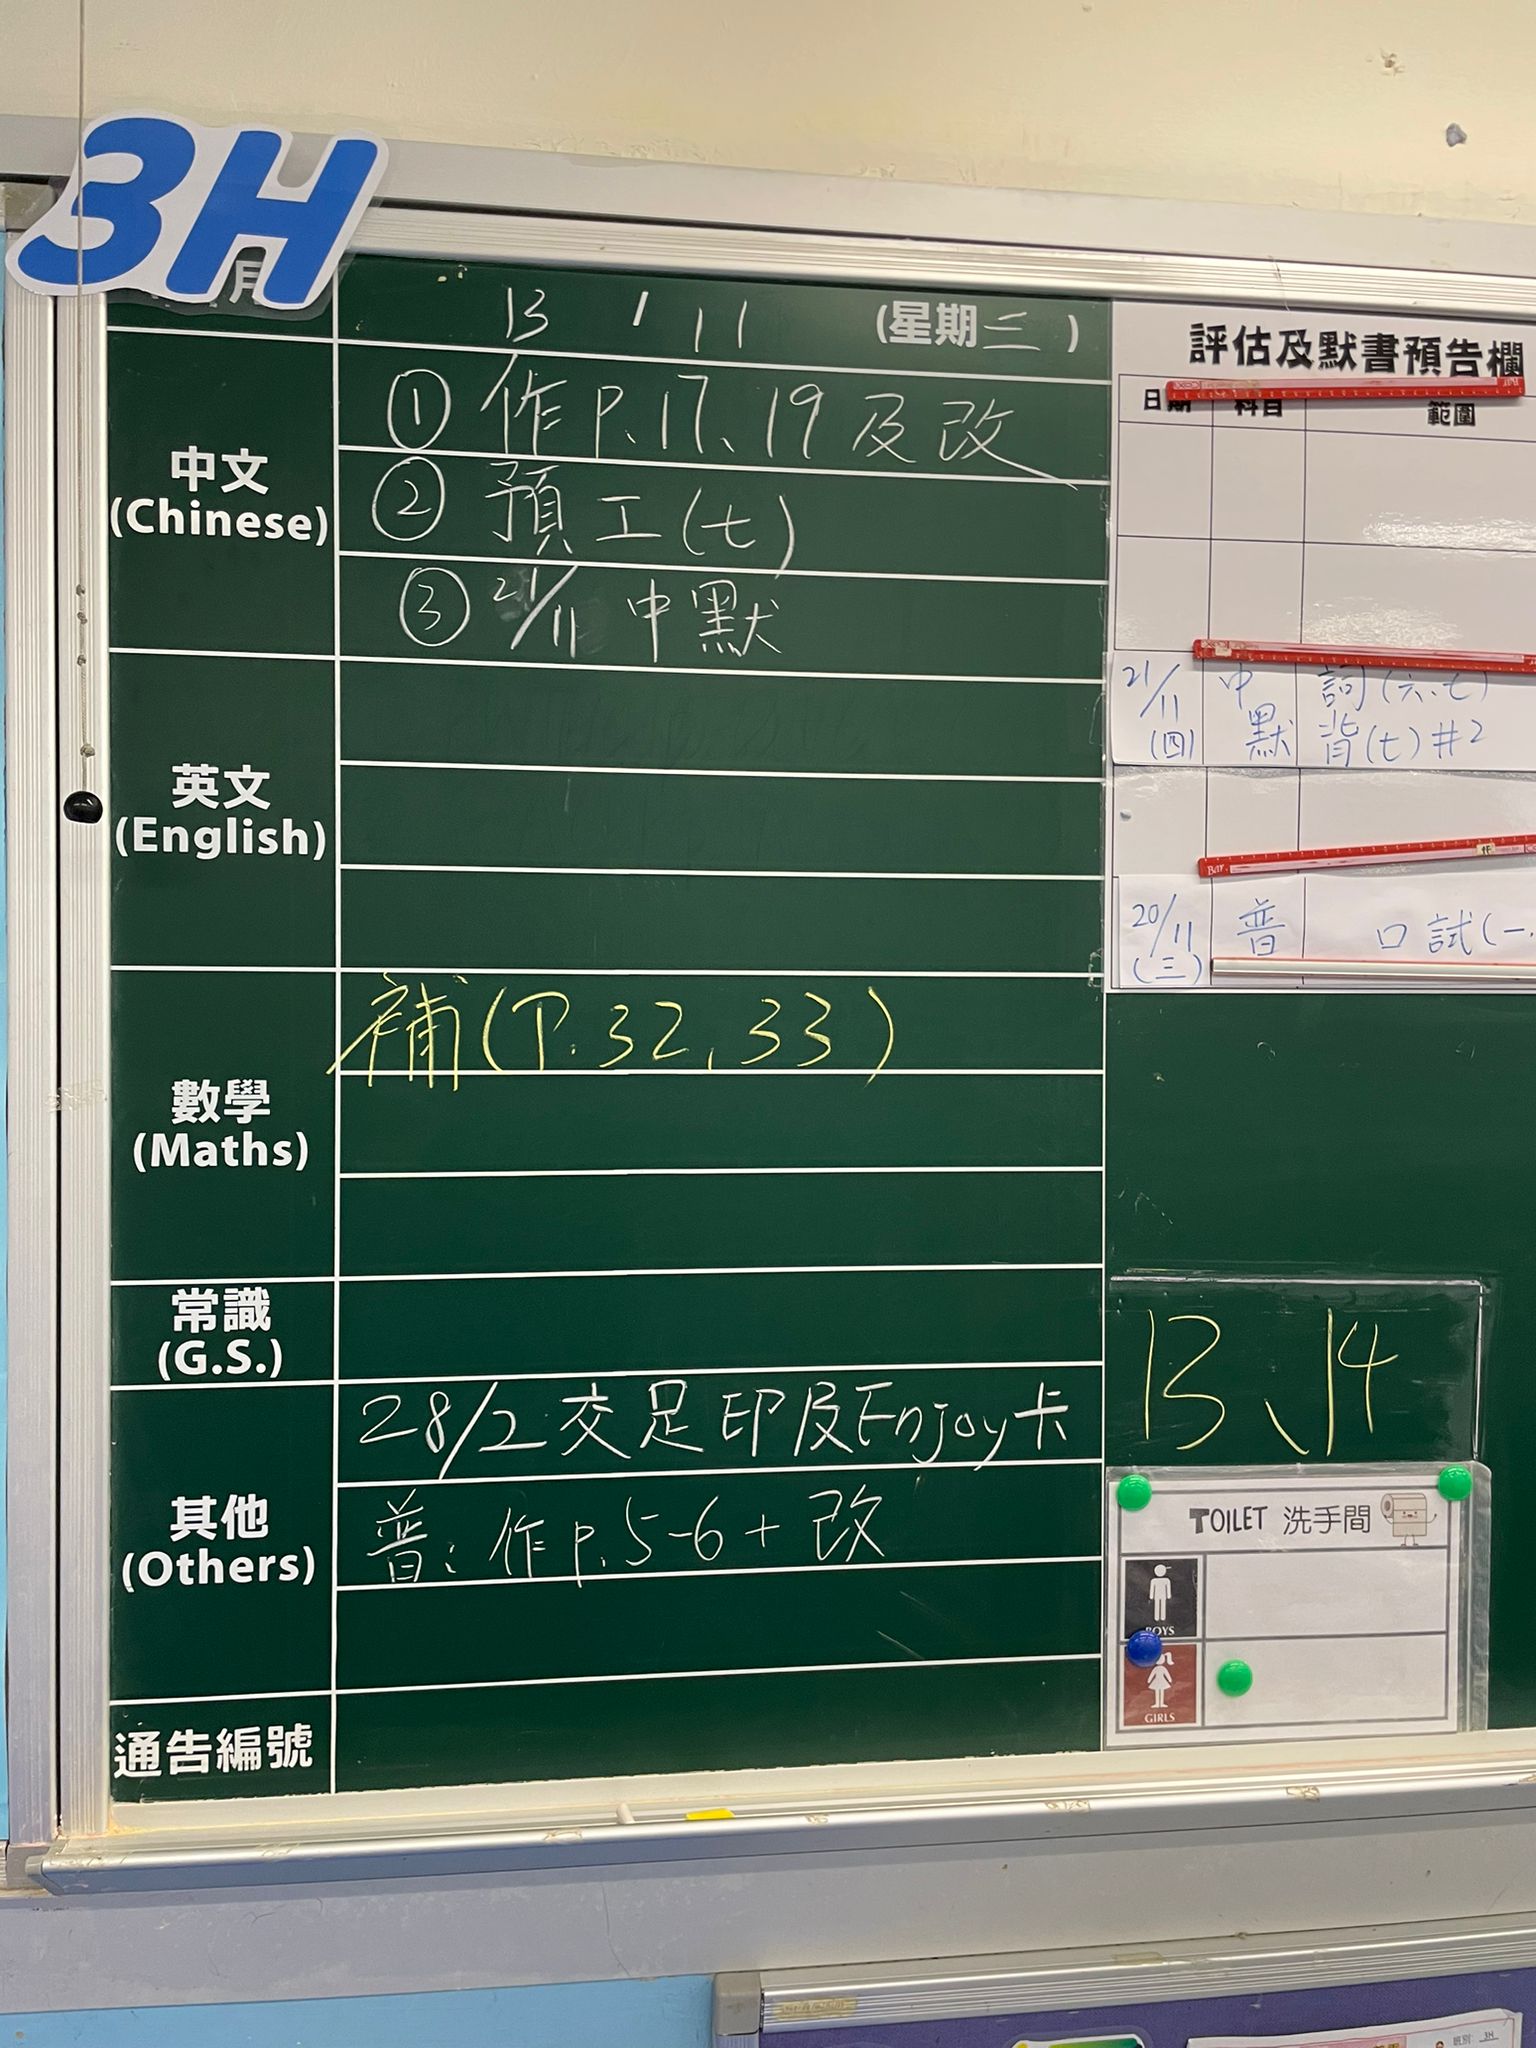 3H
月
13 / 11 (星期三)
中文
(Chinese)
① 作P.17、19及改
② 預工(七)
③ 21/11 中默
英文
(English)
數學
(Maths)
補(P.32、33)
常識
(G.S.)
其他
(Others)
28/2交足印及Enjoy卡
普：作p.5-6+改
通告編號
評估及默書預告欄
日期 科目 範圍
21/11 (四) 中默 詞(六、七)
背(七)#2
20/11 (三) 普 口試(一、
13、14
TOILET 洗手間
BOYS
GIRLS
班別: 3H